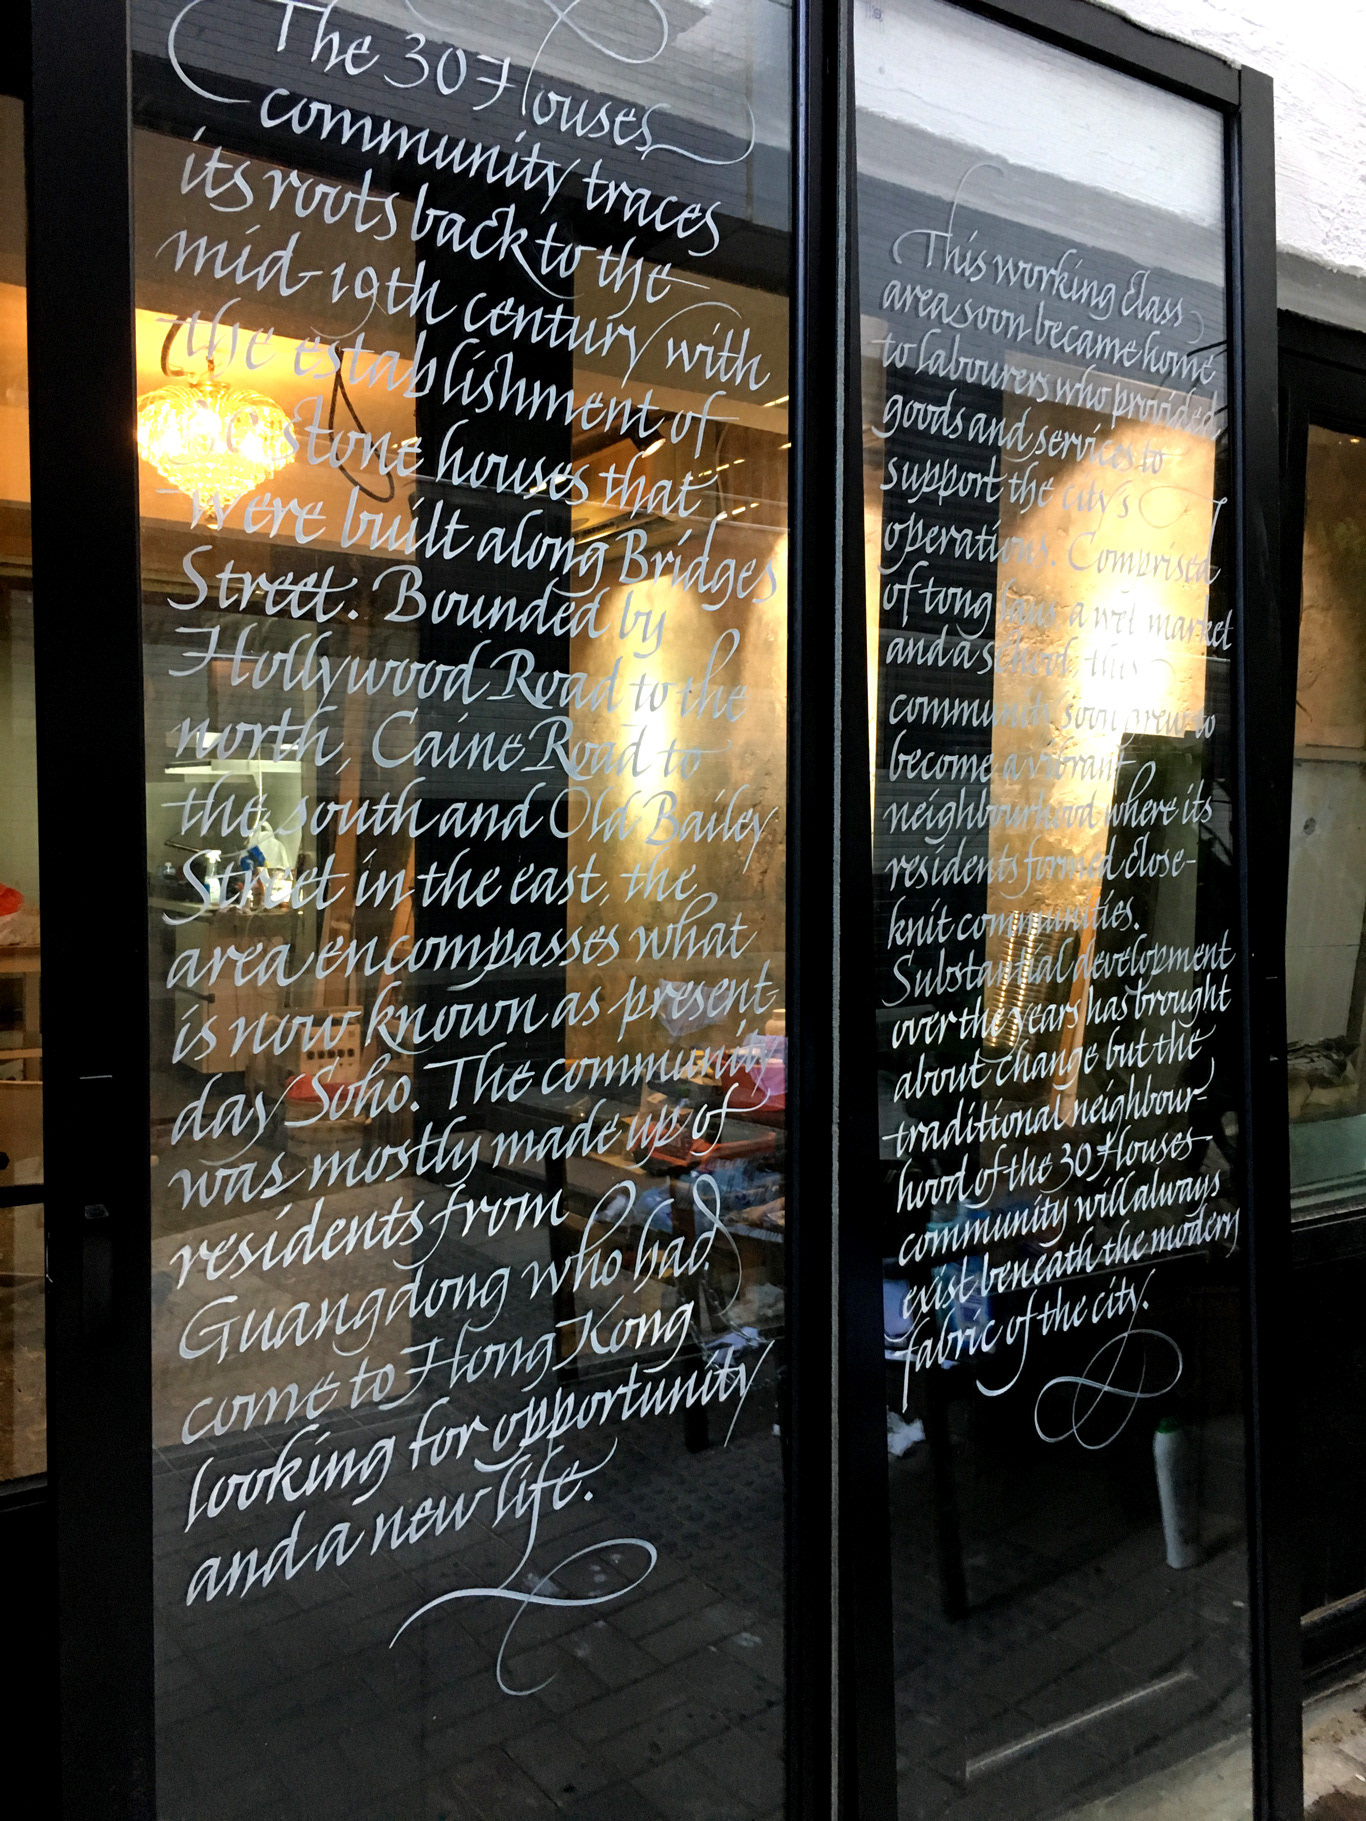 The 30 Houses
community traces
its roots back to the
mid-19th century with
the establishment of
stone houses that
were built along Bridges
Street. Bounded by
Hollywood Road to the
north, Caine Road to
the south and Old Bailey
Street in the east, the
area encompasses what
is now known as present-
day Soho. The community
was mostly made up of
residents from
Guangdong who had
come to Hong Kong
looking for opportunity
and a new life.
This working class
area soon became home
to labourers who provided
goods and services to
support the city's
operations. Comprised
of tong laus a wet market
and a school, this
community soon grew to
become a vibrant
neighbourhood where its
residents formed close-
knit communities.
Substantial development
over the years has brought
about change but the
traditional neighbour-
hood of the 30 Houses
community will always
exist beneath the modern
fabric of the city.